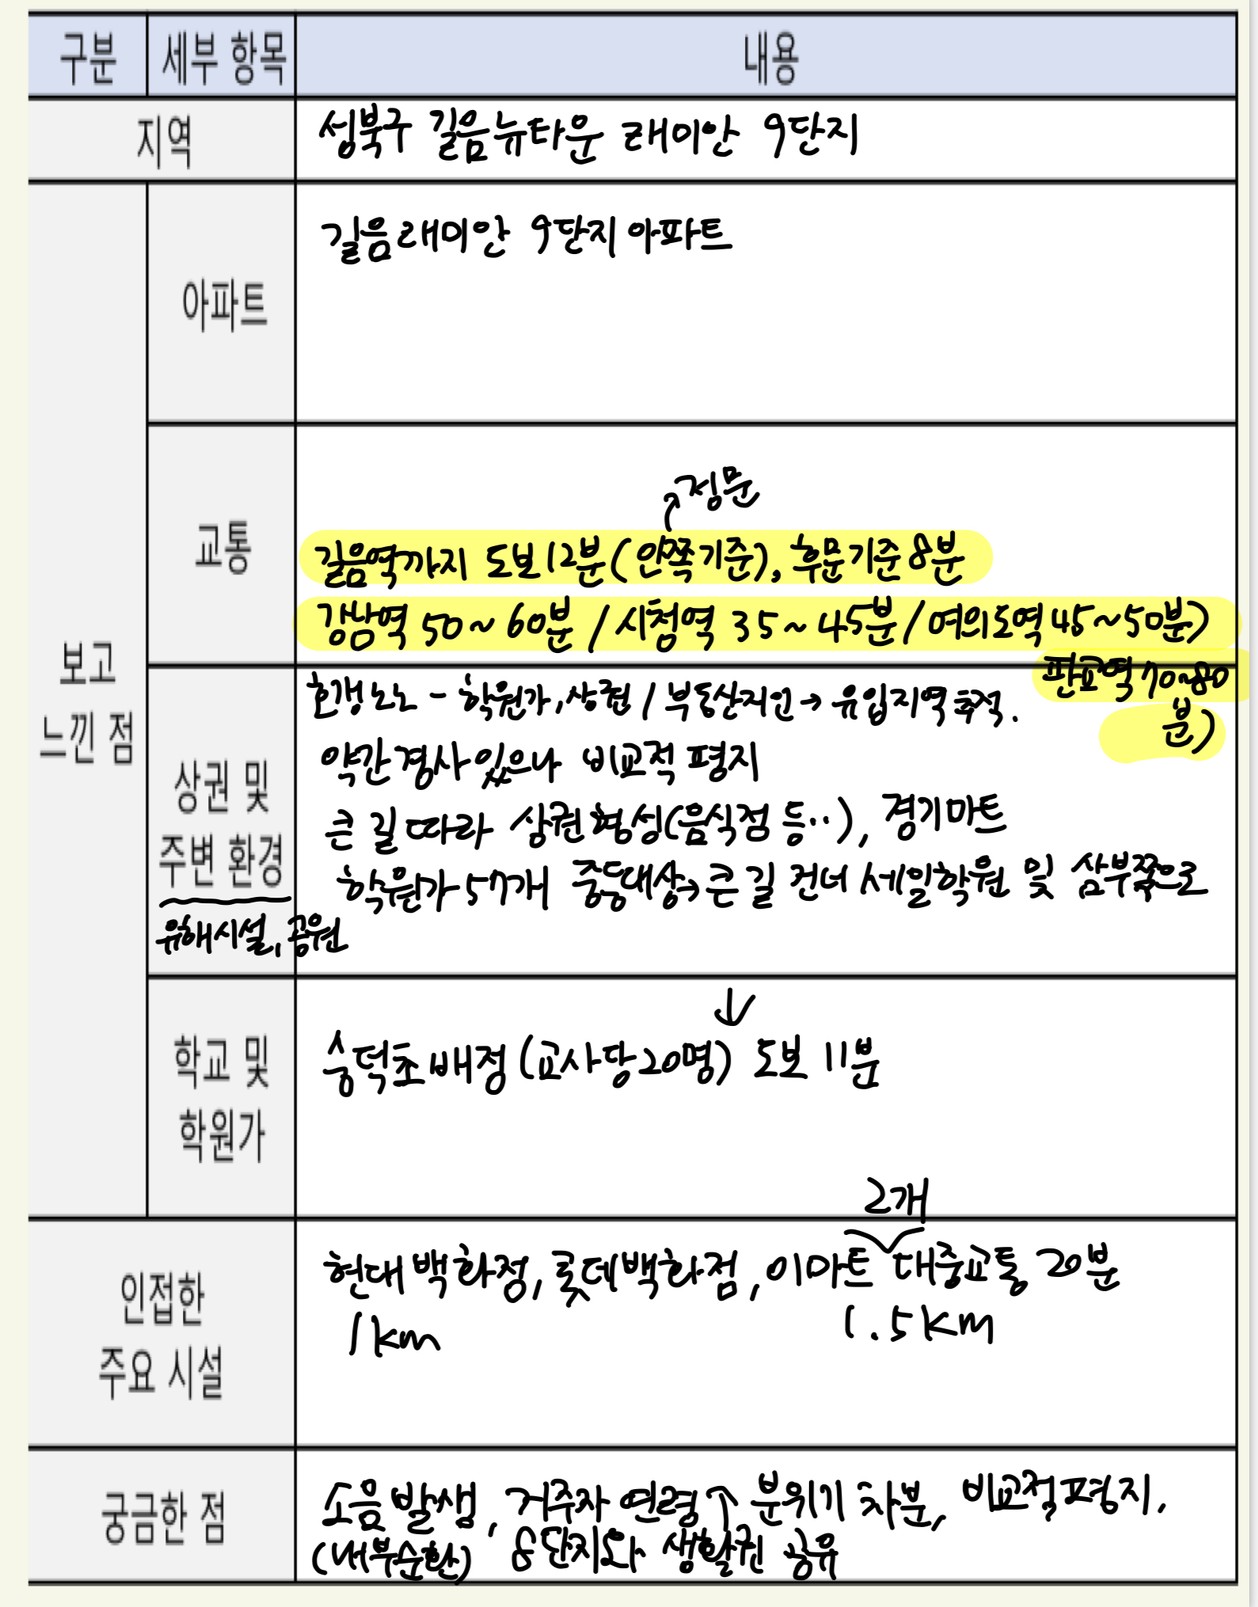 구분 세부 항목 내용
지역 성북구 길음뉴타운 래미안 9단지
보고
느낀 점
아파트
길음래미안 9단지 아파트
교통
정문
길음역까지 도보12분(안쪽기준), 후문기준 8분
강남역 50~60분 / 시청역 35~45분/여의도역 45~50분)
판교역 70~80
분)
상권 및
주변 환경
유해시설, 공원
호갱노노 - 학원가, 상권 / 부동산지인 → 유입지역 추적.
약간 경사 있으나 비교적 평지
큰 길 따라 상권형성(음식점 등..), 경기마트
학원가 57개 중등대상→큰 길 건너 세일학원 및 삼부쪽으로
학교 및
학원가
↓
숭덕초 배정 (교사당 20명) 도보 11분
인접한
주요 시설
2개
현대백화점, 롯데백화점, 이마트 대중교통 20분
1km 1.5km
궁금한 점
소음발생, 거주자 연령↑ 분위기 차분, 비교적평지.
(내부순환) 8단지와 생활권 공유